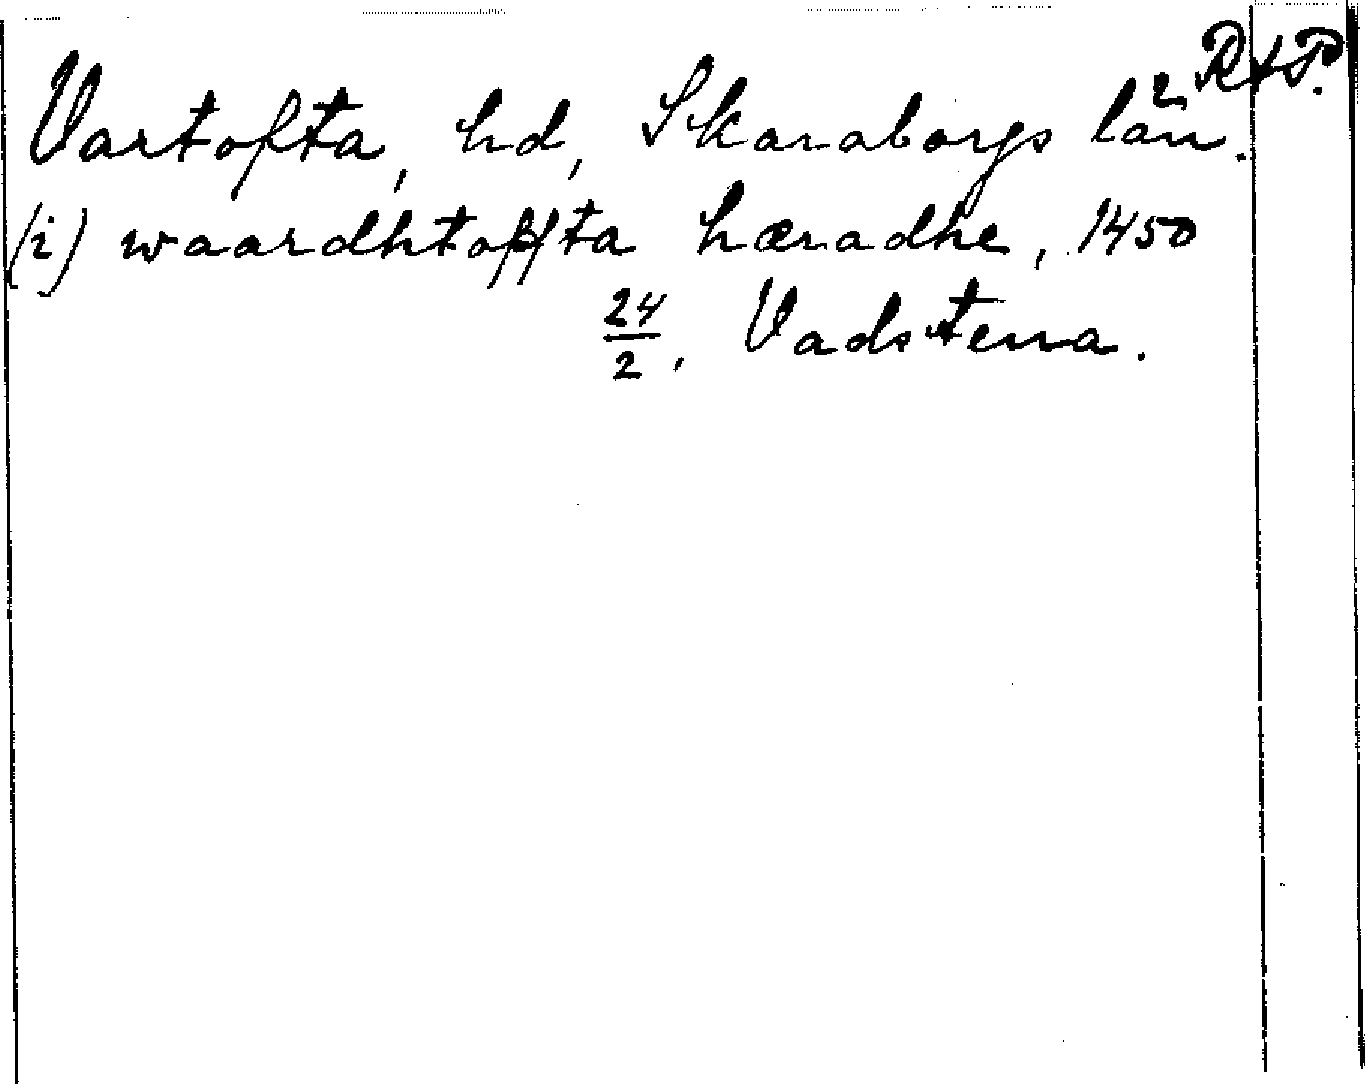 RAP.
Vartofta, hd, Skaraborgs län.
(i) waardhtoffta hæradhe, 1450
24/2, Vadstena.